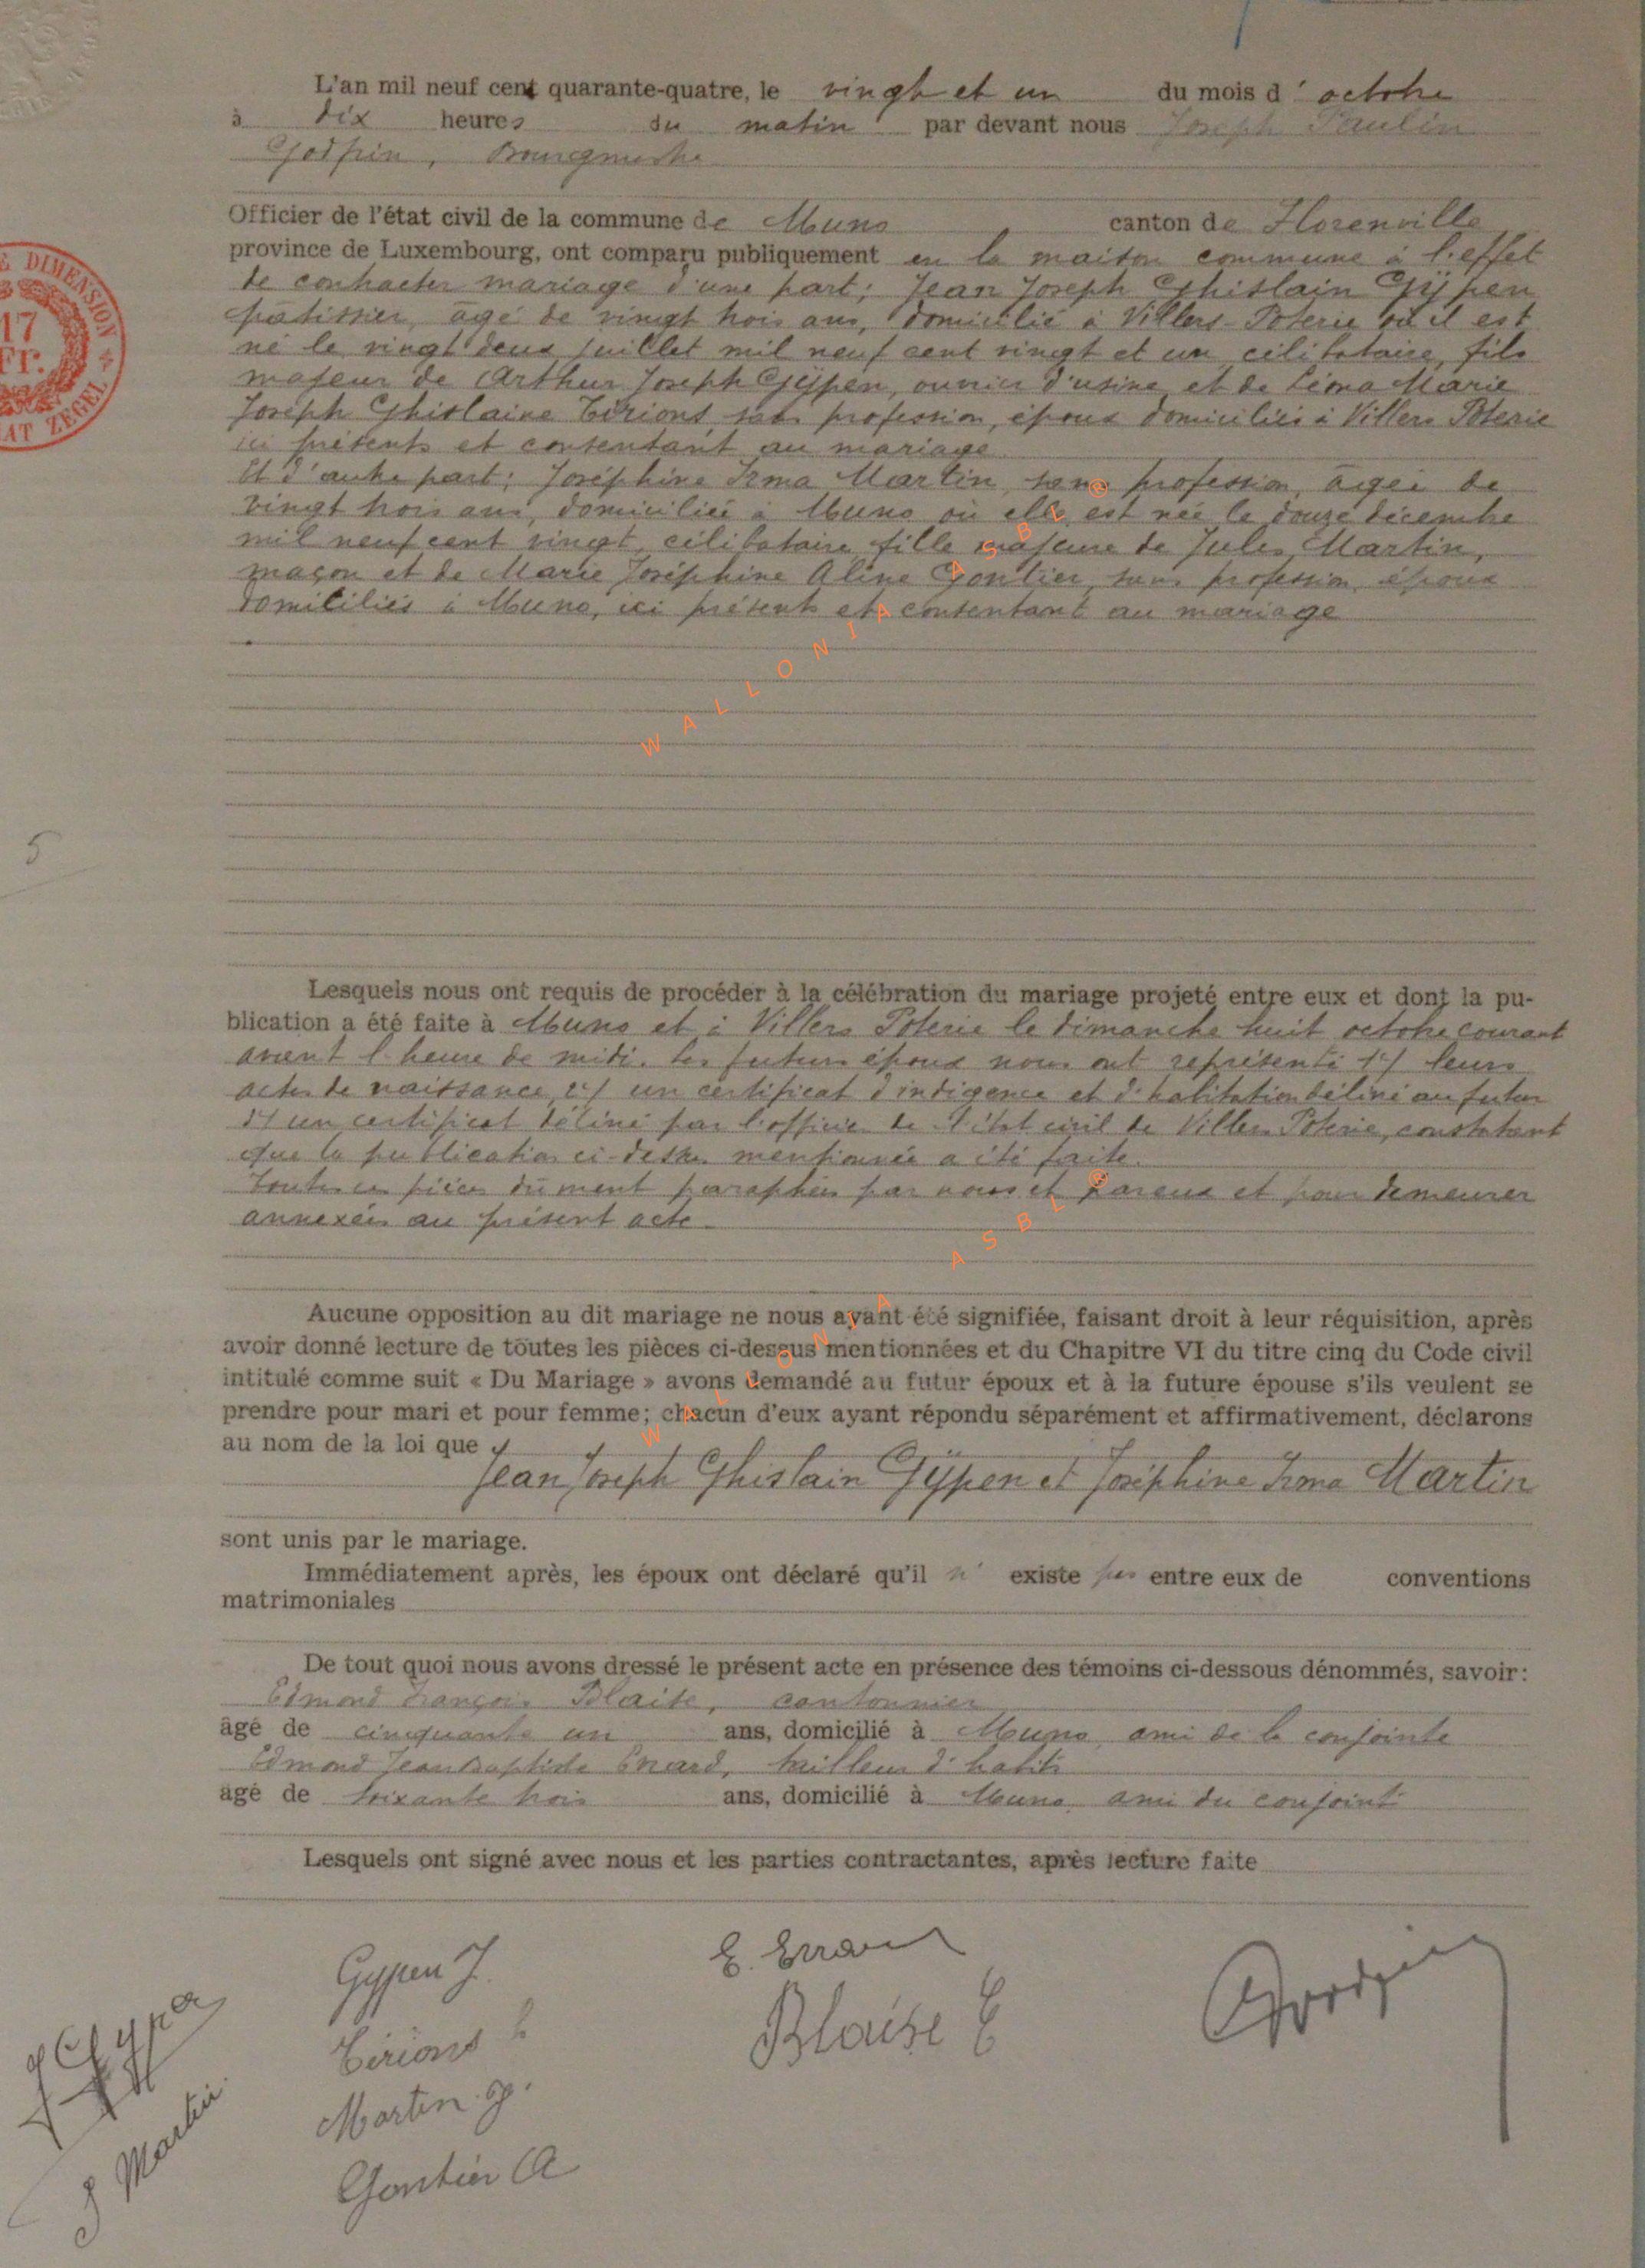 L'an mil neuf cent quarante-quatre, le vingt et un du mois d'octobre
à dix heures du matin par devant nous Joseph Paulin
Godfrin, Bourgmestre
Officier de l'état civil de la commune de Muno canton de Florenville
province de Luxembourg, ont comparu publiquement en la maison commune à l'effet
de contracter mariage d'une part; Jean Joseph Ghislain Gÿpen
pâtissier, âgé de vingt trois ans, domicilié à Villers-Poterie où il est
né le vingt deux juillet mil neuf cent vingt et un, célibataire, fils
majeur de Arthur Joseph Gÿpen, ouvrier d'usine et de Léona Marie
Joseph Ghislaine Tirions, sans profession, époux domiciliés à Villers Poterie
ici présents et consentant au mariage
Et d'autre part; Joséphine Irma Martin, sans profession, âgée de
vingt trois ans, domiciliée à Muno où elle est née le douze décembre
mil neuf cent vingt, célibataire, fille majeure de Jules Martin,
maçon et de Marie Joséphine Aline Gontier, sans profession, époux
domiciliés à Muno, ici présents et consentant au mariage
WALLONIA ASBL ®
5
E DIMENSION
17
Fr.
AT ZEGEL
Lesquels nous ont requis de procéder à la célébration du mariage projeté entre eux et dont la pu-
blication a été faite à Muno et à Villers Poterie le dimanche huit octobre courant
avant l'heure de midi. Les futurs époux nous ont représenté 1°/ leurs
actes de naissance, 2°/ un certificat d'indigence et d'habitation délivré au futur
3°/ un certificat délivré par l'officier de l'état civil de Villers Poterie, constatant
que la publication ci-dessus mentionnée a été faite.
Toutes ces pièces dûment paraphées par nous et pareux et pour demeurer
annexées au présent acte.
WALLONIA ASBL ®
Aucune opposition au dit mariage ne nous ayant été signifiée, faisant droit à leur réquisition, après
avoir donné lecture de toutes les pièces ci-dessus mentionnées et du Chapitre VI du titre cinq du Code civil
intitulé comme suit « Du Mariage » avons demandé au futur époux et à la future épouse s'ils veulent se
prendre pour mari et pour femme; chacun d'eux ayant répondu séparément et affirmativement, déclarons
au nom de la loi que
Jean Joseph Ghislain Gÿpen et Joséphine Irma Martin
sont unis par le mariage.
Immédiatement après, les époux ont déclaré qu'il n' existe pas entre eux de conventions
matrimoniales
De tout quoi nous avons dressé le présent acte en présence des témoins ci-dessous dénommés, savoir:
Edmond François Blaise, cantonnier
âgé de cinquante un ans, domicilié à Muno, ami de la conjointe
Edmond Jean Baptiste Enard, tailleur d'habits
âgé de soixante trois ans, domicilié à Muno ami du conjoint
Lesquels ont signé avec nous et les parties contractantes, après lecture faite
Gypen J.
E. Enard
Godfrin
Blaise E
J Gypen
Tirions L
Martin J.
J Martin
Gontier A